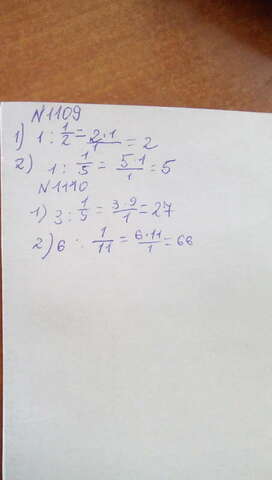 N1109
1) 1 : 1/2 = 2·1/1 = 2
2) 1 : 1/5 = 5·1/1 = 5
N1110
1) 3 : 1/9 = 3·9/1 = 27
2) 6 : 1/11 = 6·11/1 = 66